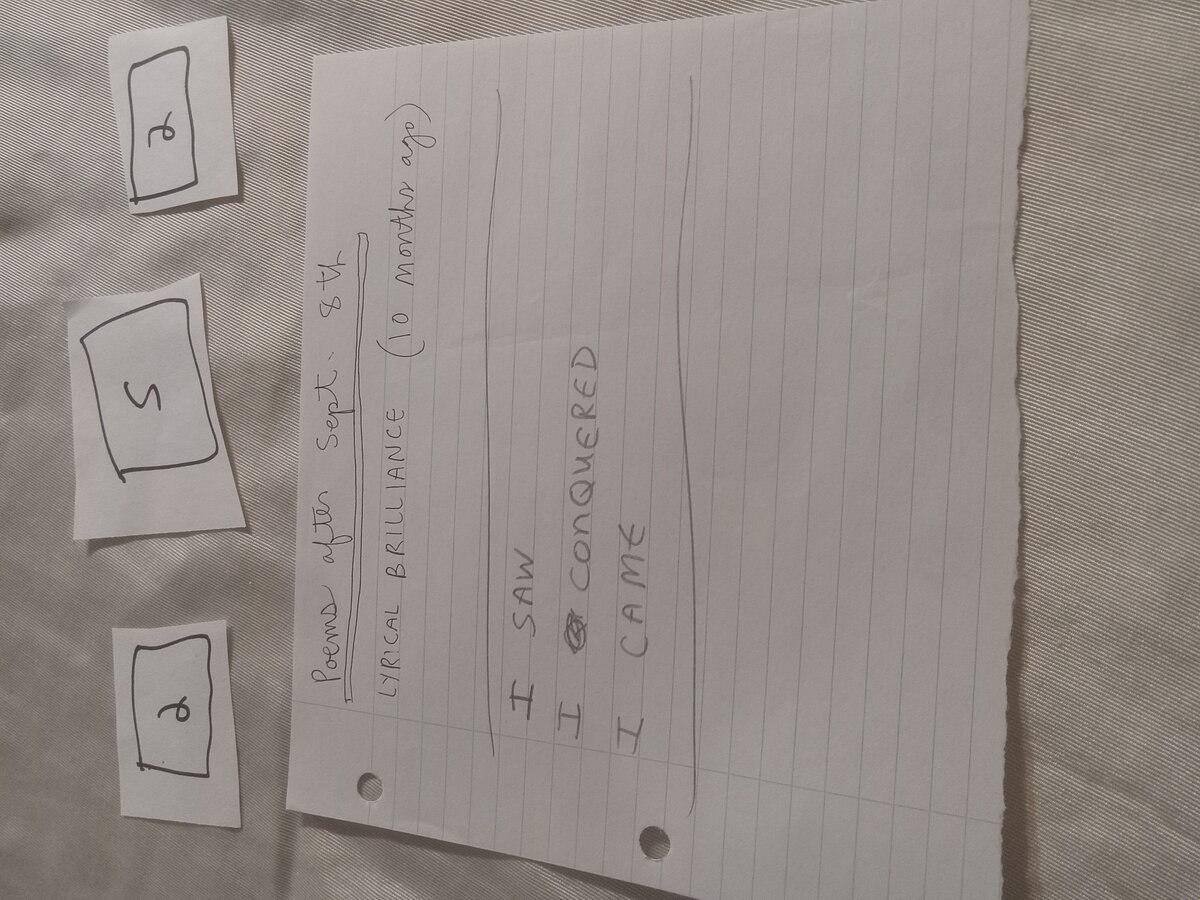 2 5 2
Poems after Sept. 8th
LYRICAL BRILLIANCE (10 months ago)
I SAW
I CONQUERED
I CAME